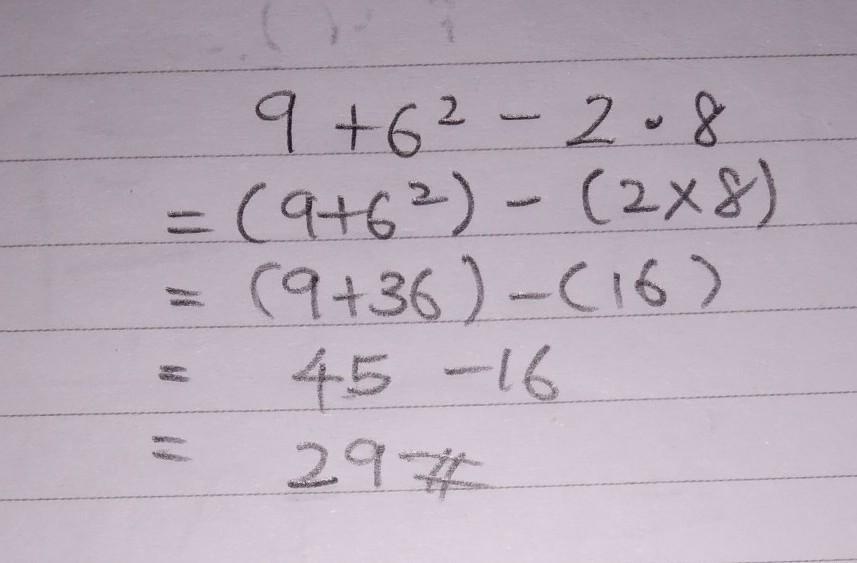 9 + 6² - 2 · 8
= (9+6²) - (2×8)
= (9+36) - (16)
= 45 - 16
= 29